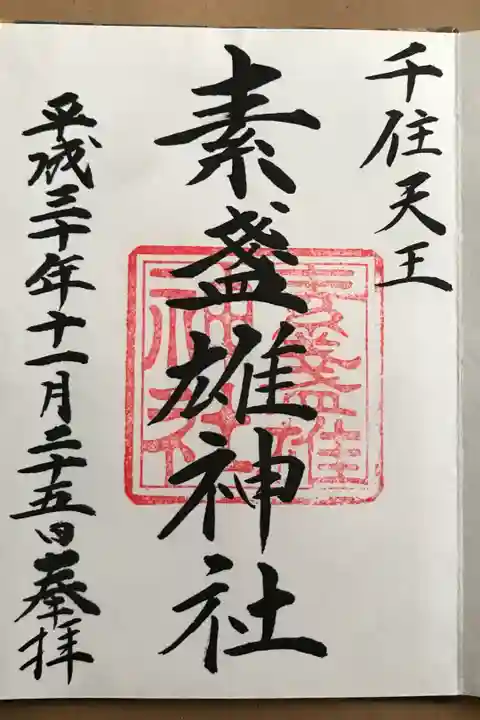 千住天王
素盞雄神社
素盞雄
神社
平成三十年十一月二十五日奉拝